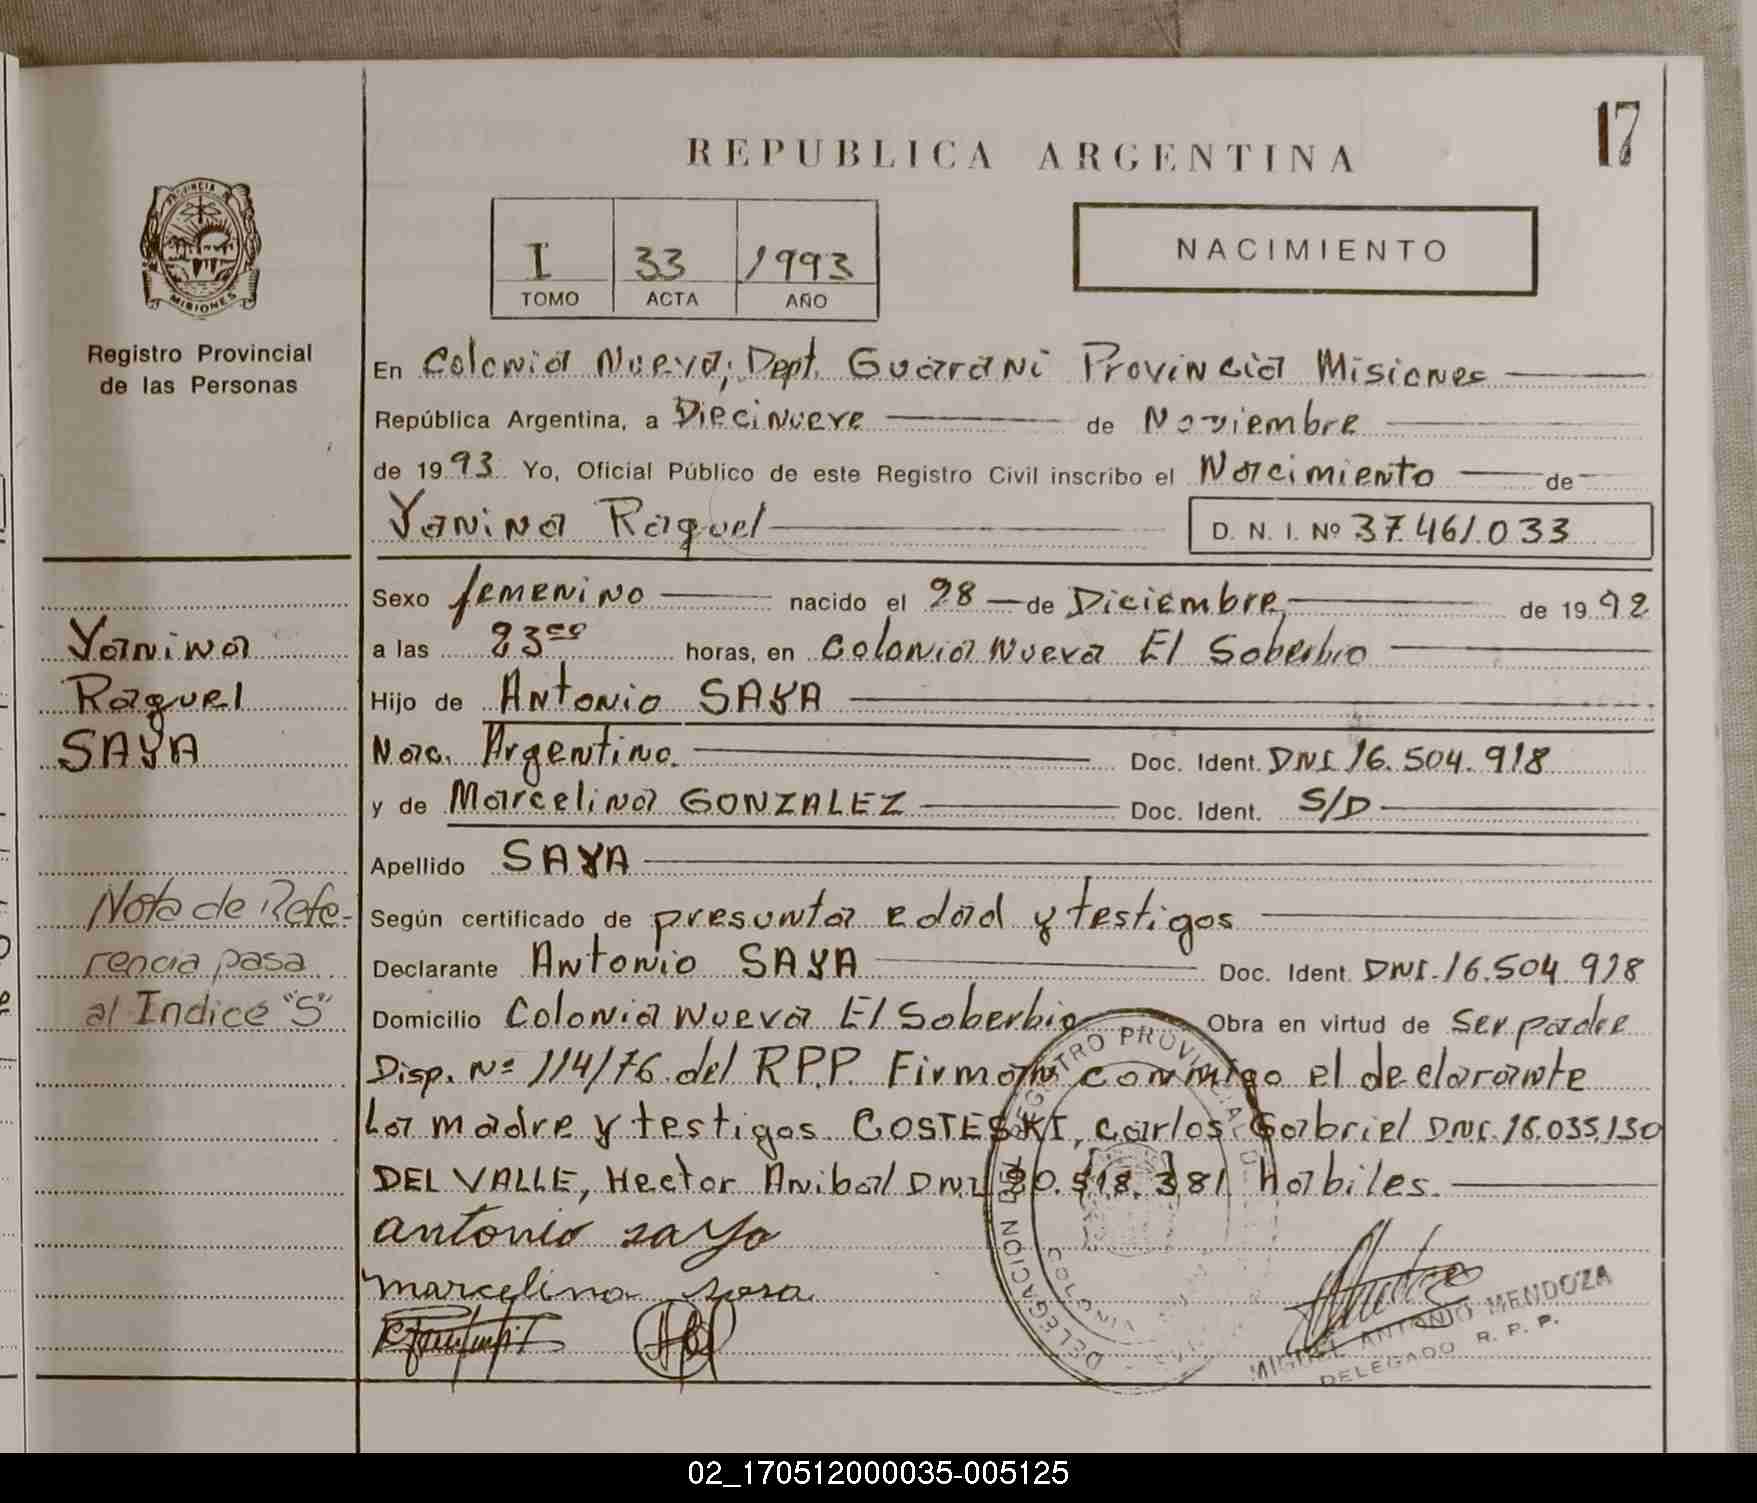 17
REPUBLICA ARGENTINA
PROVINCIA DE
MISIONES
I 33 1993
TOMO ACTA AÑO
NACIMIENTO
Registro Provincial
de las Personas
En Colonia Nueva, Dept. Guarani Provincia Misiones
República Argentina, a Diecinueve de Noviembre
de 1993 Yo, Oficial Público de este Registro Civil inscribo el Nacimiento de
Yanina Raquel D. N. I. Nº 37.461.033
Sexo femenino nacido el 28 de Diciembre, de 1992
a las 23 00 horas, en Colonia Nueva El Soberbio
Hijo de Antonio SAYA
Nac. Argentina. Doc. Ident. DNI 16.504.918
y de Marcelina GONZALEZ Doc. Ident. S/D
Apellido SAYA
Según certificado de presunta edad y testigos
Declarante Antonio SAYA Doc. Ident. DNI. 16.504.918
Domicilio Colonia Nueva El Soberbio Obra en virtud de ser padre
Disp. Nº 114/76 del R.P.P. Firman conmigo el declarante
La madre y testigos COSTESKI, Carlos Gabriel DNI. 16.035.130
DEL VALLE, Hector Anibal DNI 20.518.381 habiles.
Yanina
Raquel
SAYA
Nota de Refe-
rencia pasa
al Indice "S"
antonio saya
marcelina sosa
DELEGACION DEL REGISTRO PROVINCIAL D
COLONIA
MIGUEL ANTONIO MENDOZA
DELEGADO R. P. P.
02_170512000035-005125